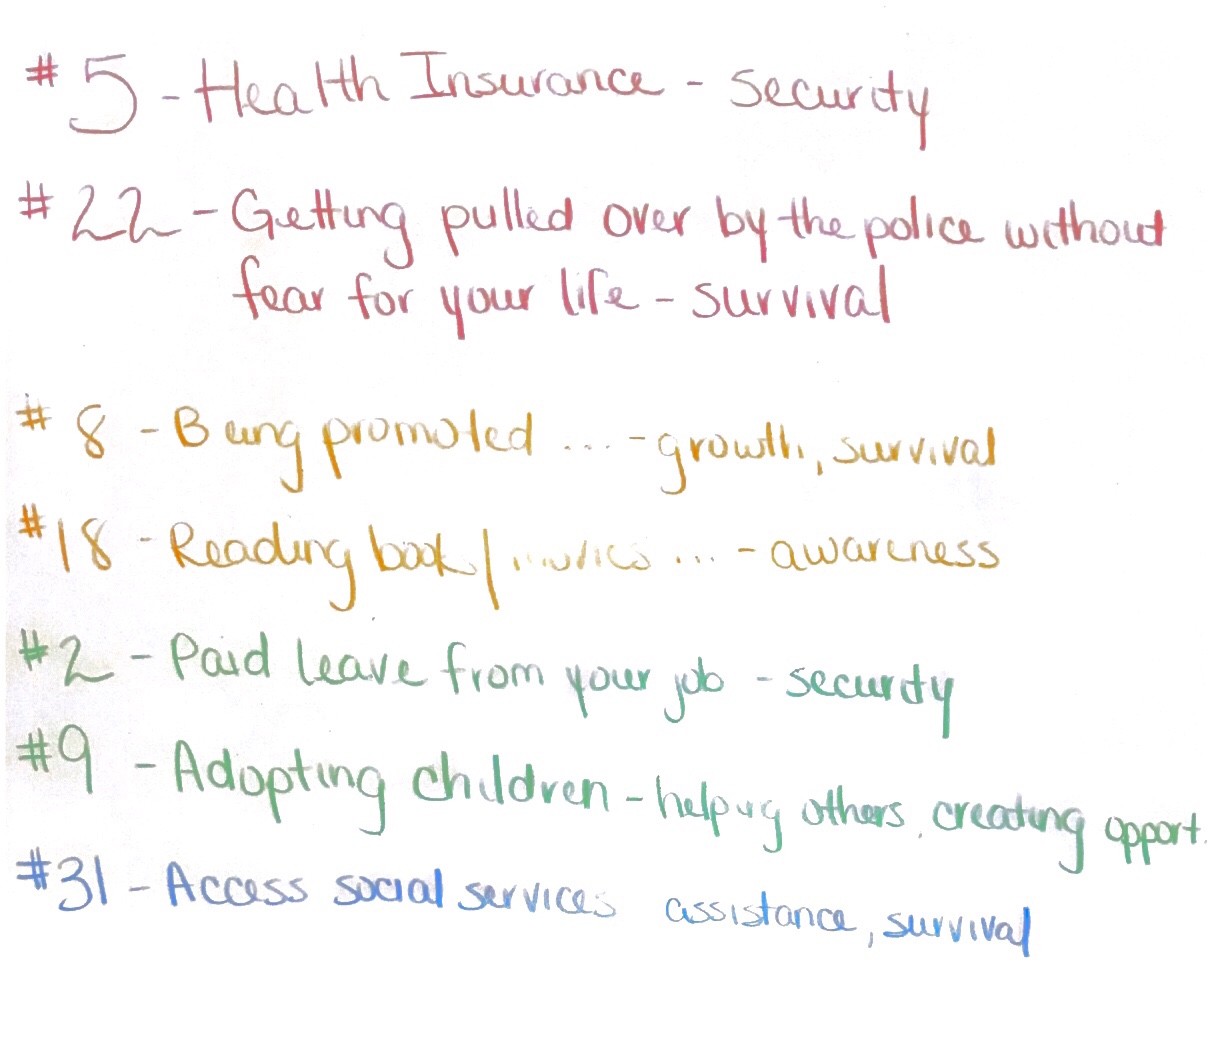 #5 - Health Insurance - security
#22 - Getting pulled over by the police without
fear for your life - survival
#8 - Being promoted ... - growth, survival
#18 - Reading book/movies ... - awareness
#2 - Paid leave from your job - security
#9 - Adopting children - helping others, creating opport.
#31 - Access social services assistance, survival